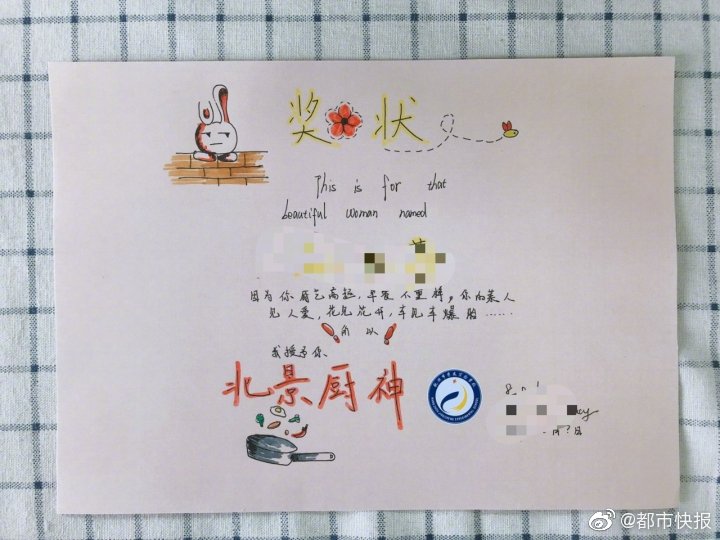 奖状
This is for that
beautiful woman named
因为你厨艺高超,早夜不重样,你的菜人
见人爱,花见花开,车见车爆胎……
所以
我授予你
北景厨神
@都市快报